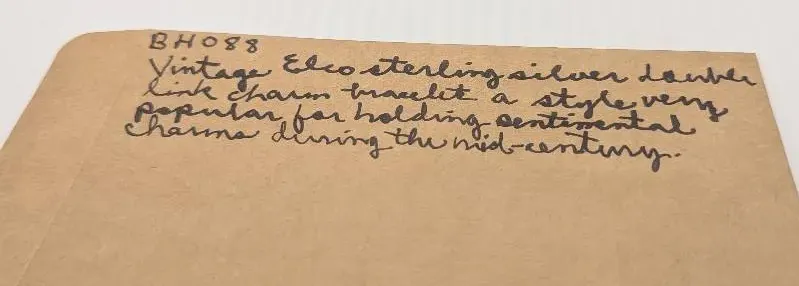 BH088
Vintage Elco sterling silver double
link charm bracelet a style very
popular for holding sentimental
charms during the mid-century.